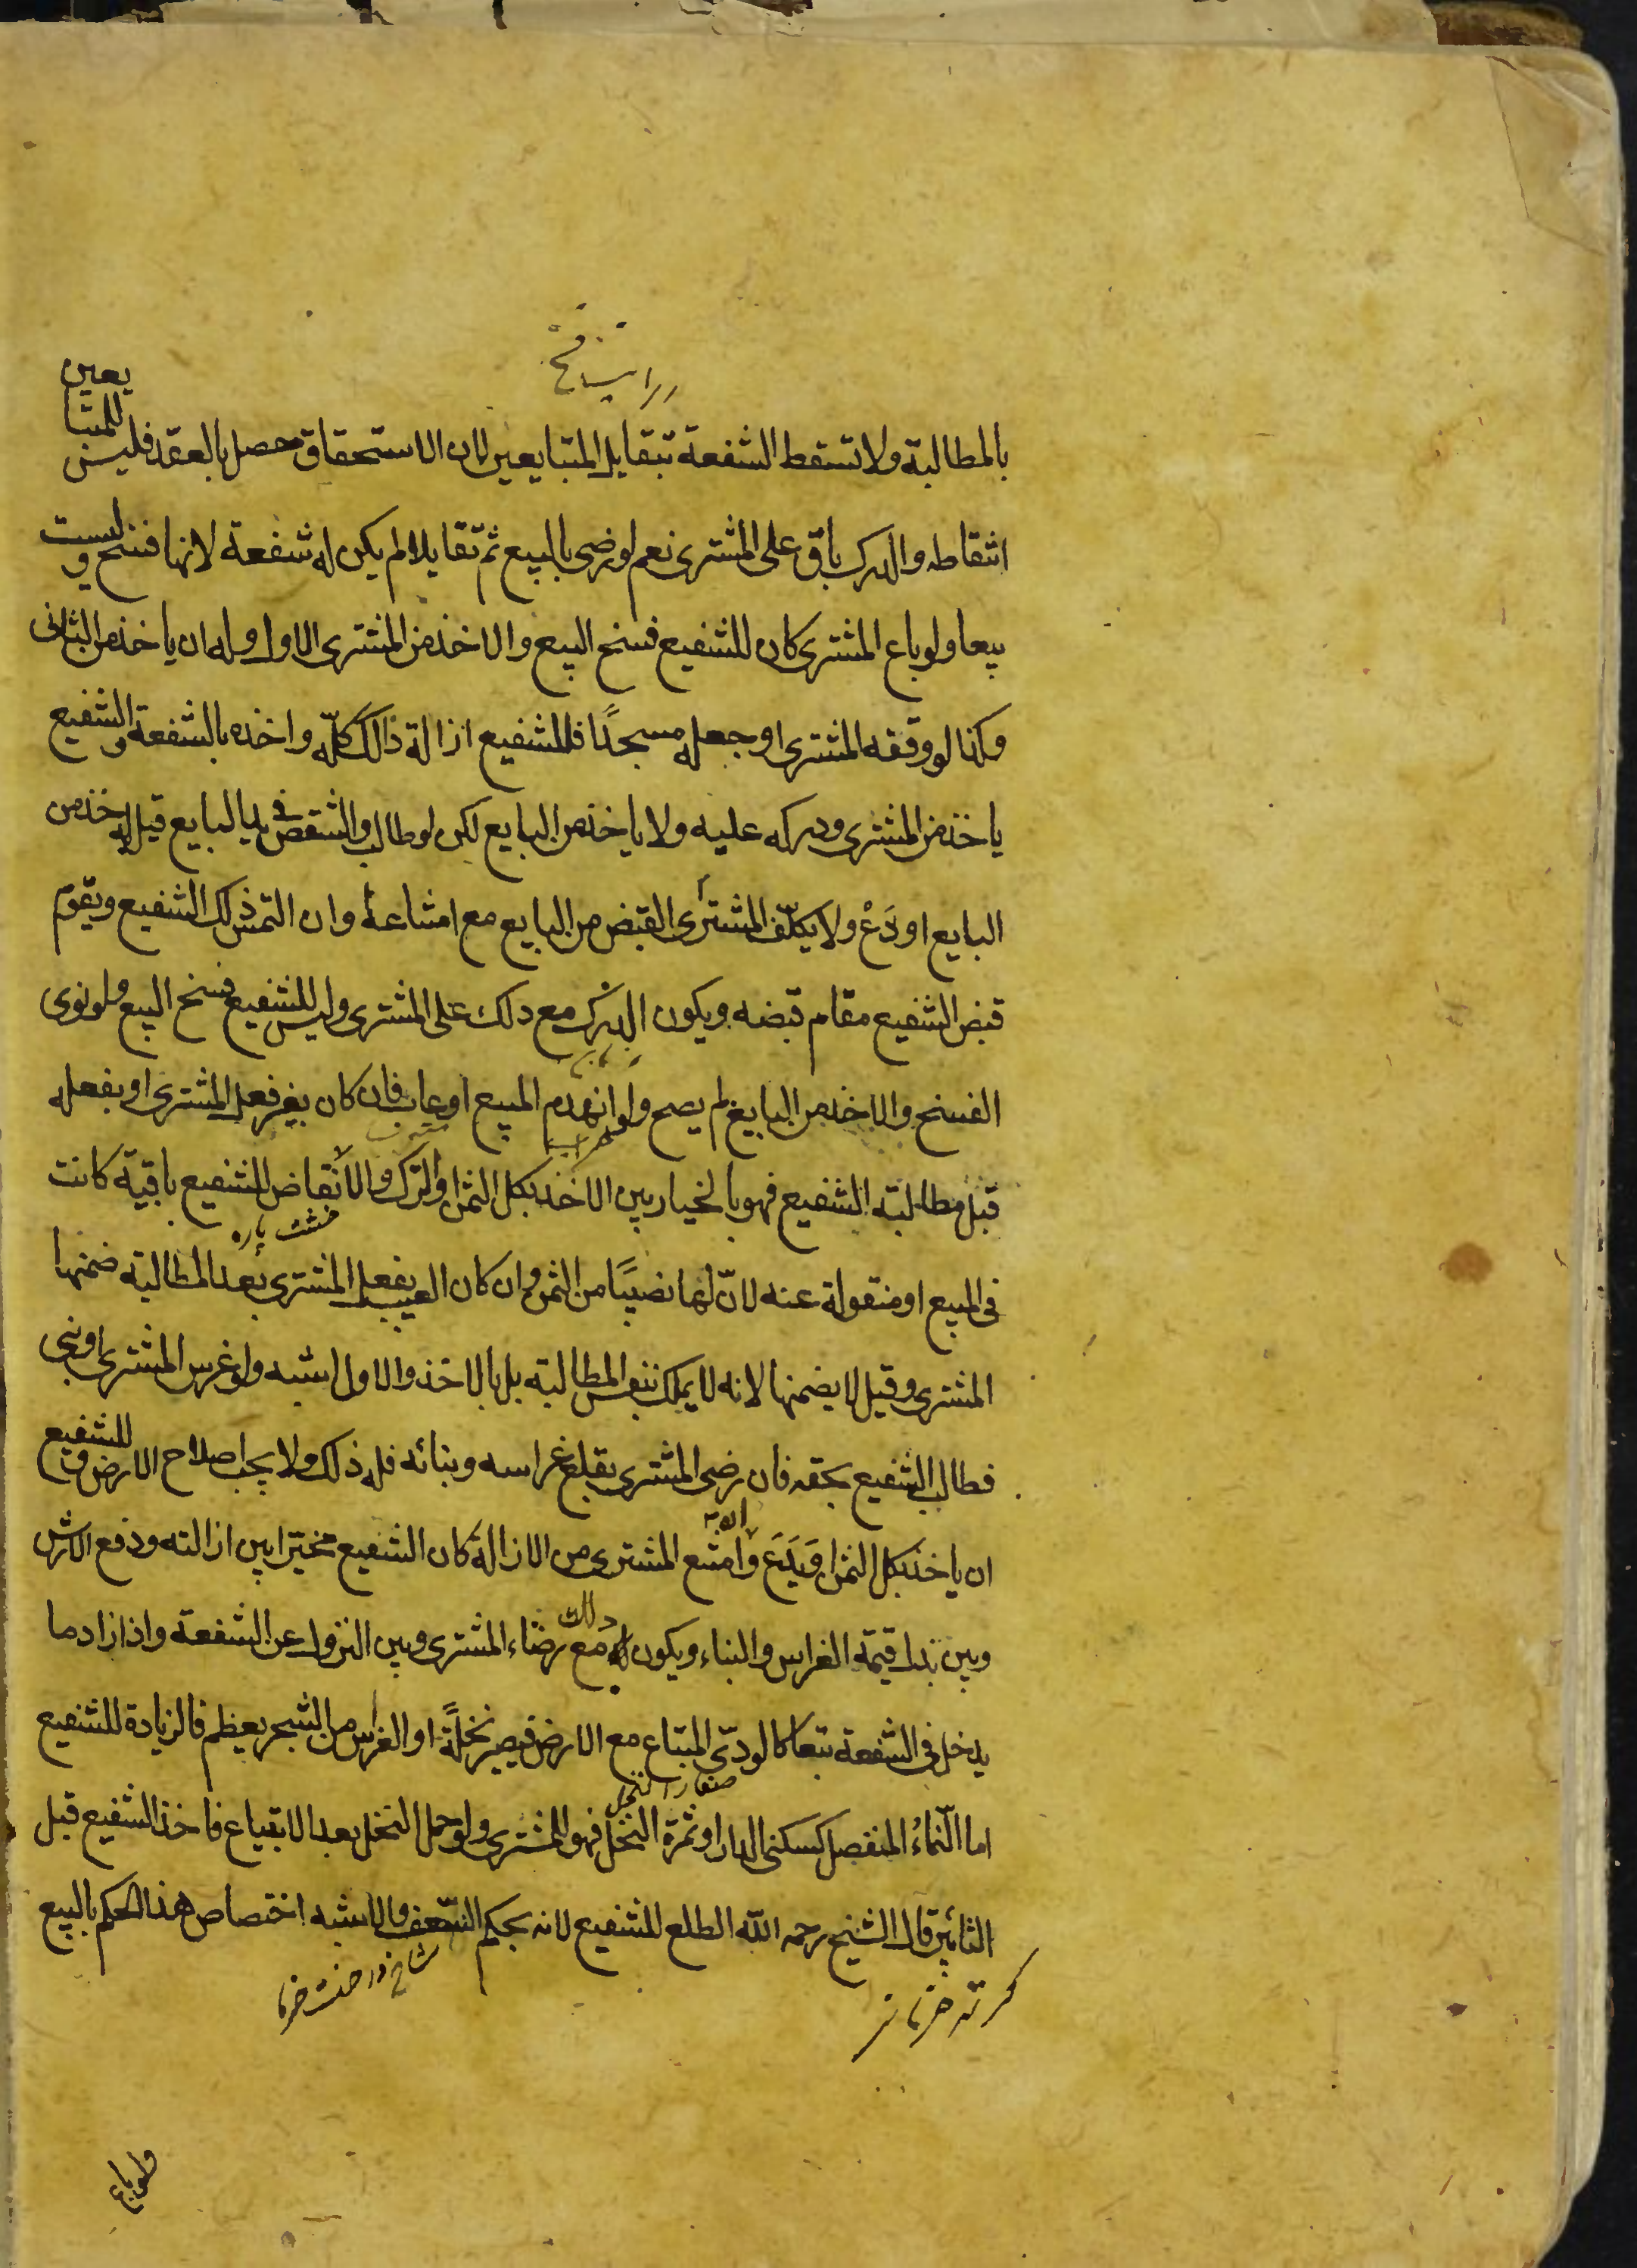 بالمطالبة ولا تسقط الشفعة بتقايل المتبايعين لان الاستحقاق حصل بالعقد فليس للمتبايعين
اسقاطه والدرك باق على المشترى نعم لو رضى بالبيع ثم تقايلا لم يكن له شفعة لانها فسخ وليست
بيعا ولو باع المشترى كان للشفيع فسخ البيع والاخذ من المشترى الاول وله ان ياخذ من الثانى
وكذا لو وقفه المشترى او جعله مسجدًا فللشفيع ازالة ذالك كلّه واخذه بالشفعة والشفيع
ياخذ من المشترى ودركه عليه ولا ياخذ من البايع لكن لو طالب والشقص فى يد البايع قيل له خذ من
البايع او دَعْ ولا يكلّف المشترى القبض من البايع مع امتناعه وان التمس ذلك الشفيع ويقوم
قبض الشفيع مقام قبضه ويكون الدرك مع ذلك على المشترى وليس للشفيع فسخ البيع ولو نوى
الفسخ والاخذ من البايع لم يصح ولو انهدم المبيع او عاب فان كان بغير فعل المشترى او بفعله
قبل مطالبة الشفيع فهو بالخيار بين الاخذ بكل الثمن او الترك والانقاض للشفيع باقية كانت
خشت پاره
فى المبيع او منقولة عنه لانّ لها نصيبًا من الثمن وان كان العيب بفعل المشترى بعد المطالبة ضمنها
المشترى وقيل لا يضمنها لانه لا يملك بنفس المطالبة بل بالاخذ والاول اشبه ولو غرس المشترى او بنى
فطالب الشفيع بحقه فان رضى المشترى بقلع غراسه وبنائه فله ذلك ولا يجب اصلاح الارض وللشفيع
ان ياخذ بكل الثمن او يَدَع وامتنع المشترى من الازالة كان الشفيع مخيّرا بين ازالته ودفع الارش
وبين بذل قيمة الغراس والبناء ويكون ذلك مع رضاء المشترى وبين النزول عن الشفعة واذا زاد ما
يدخل فى الشفعة تبعا كالودىّ المبتاع مع الارض فيصير نخلةً او الغراس من الشجر يعظم فالزيادة للشفيع
صغار النخل
اما النّماءُ المنفصل كسكنى الدار او ثمرة النخل فهو للمشترى ولو حمل النخل بعد الابتياع فاخذ الشفيع قبل
التأبير قال الشيخ رحمه الله الطلع للشفيع لانه بحكم السّعف والاشبه اختصاص هذا الحكم بالبيع
شاخ درخت خرما
ولو باع